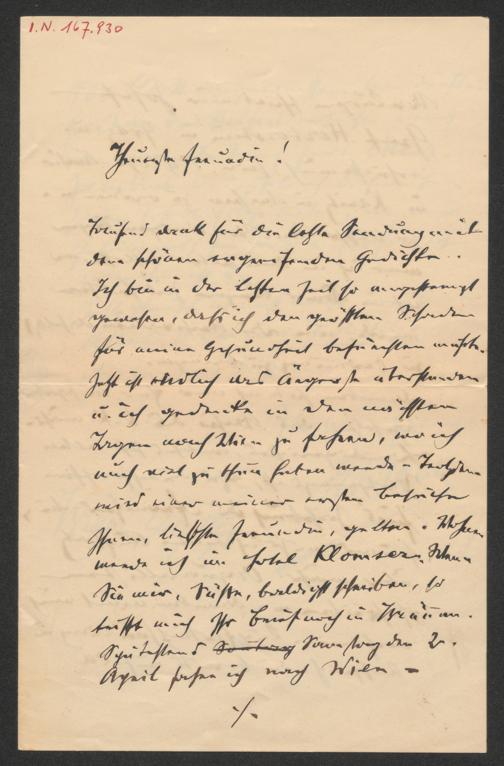 I.N. 167.930
Theuerste Freundin!
Tausend Dank für die letzte Sendung mit
dem schönen ergreifenden Gedichte..
Ich bin in der letzten Zeit so angestrengt
gewesen, daß ich den größten Schaden
für meine Gesundheit befürchten mußte.
Jetzt ist endlich das Ärgerste überstanden
u. ich gedenke in den nächsten
Tagen nach Wien zu fahren, wo ich
auch viel zu thun haben werde - Trotzdem
wird einer meiner ersten Besuche
Ihnen, liebste Freundin, gelten. Wohnen
werde ich im Hotel Klomser. Wenn
Sie mir, baldigst schreiben, so
trifft mich Ihr Brief noch in Brünn.
Spätestens Sonntag Samstag den 2.
April fahre ich nach Wien -
./.